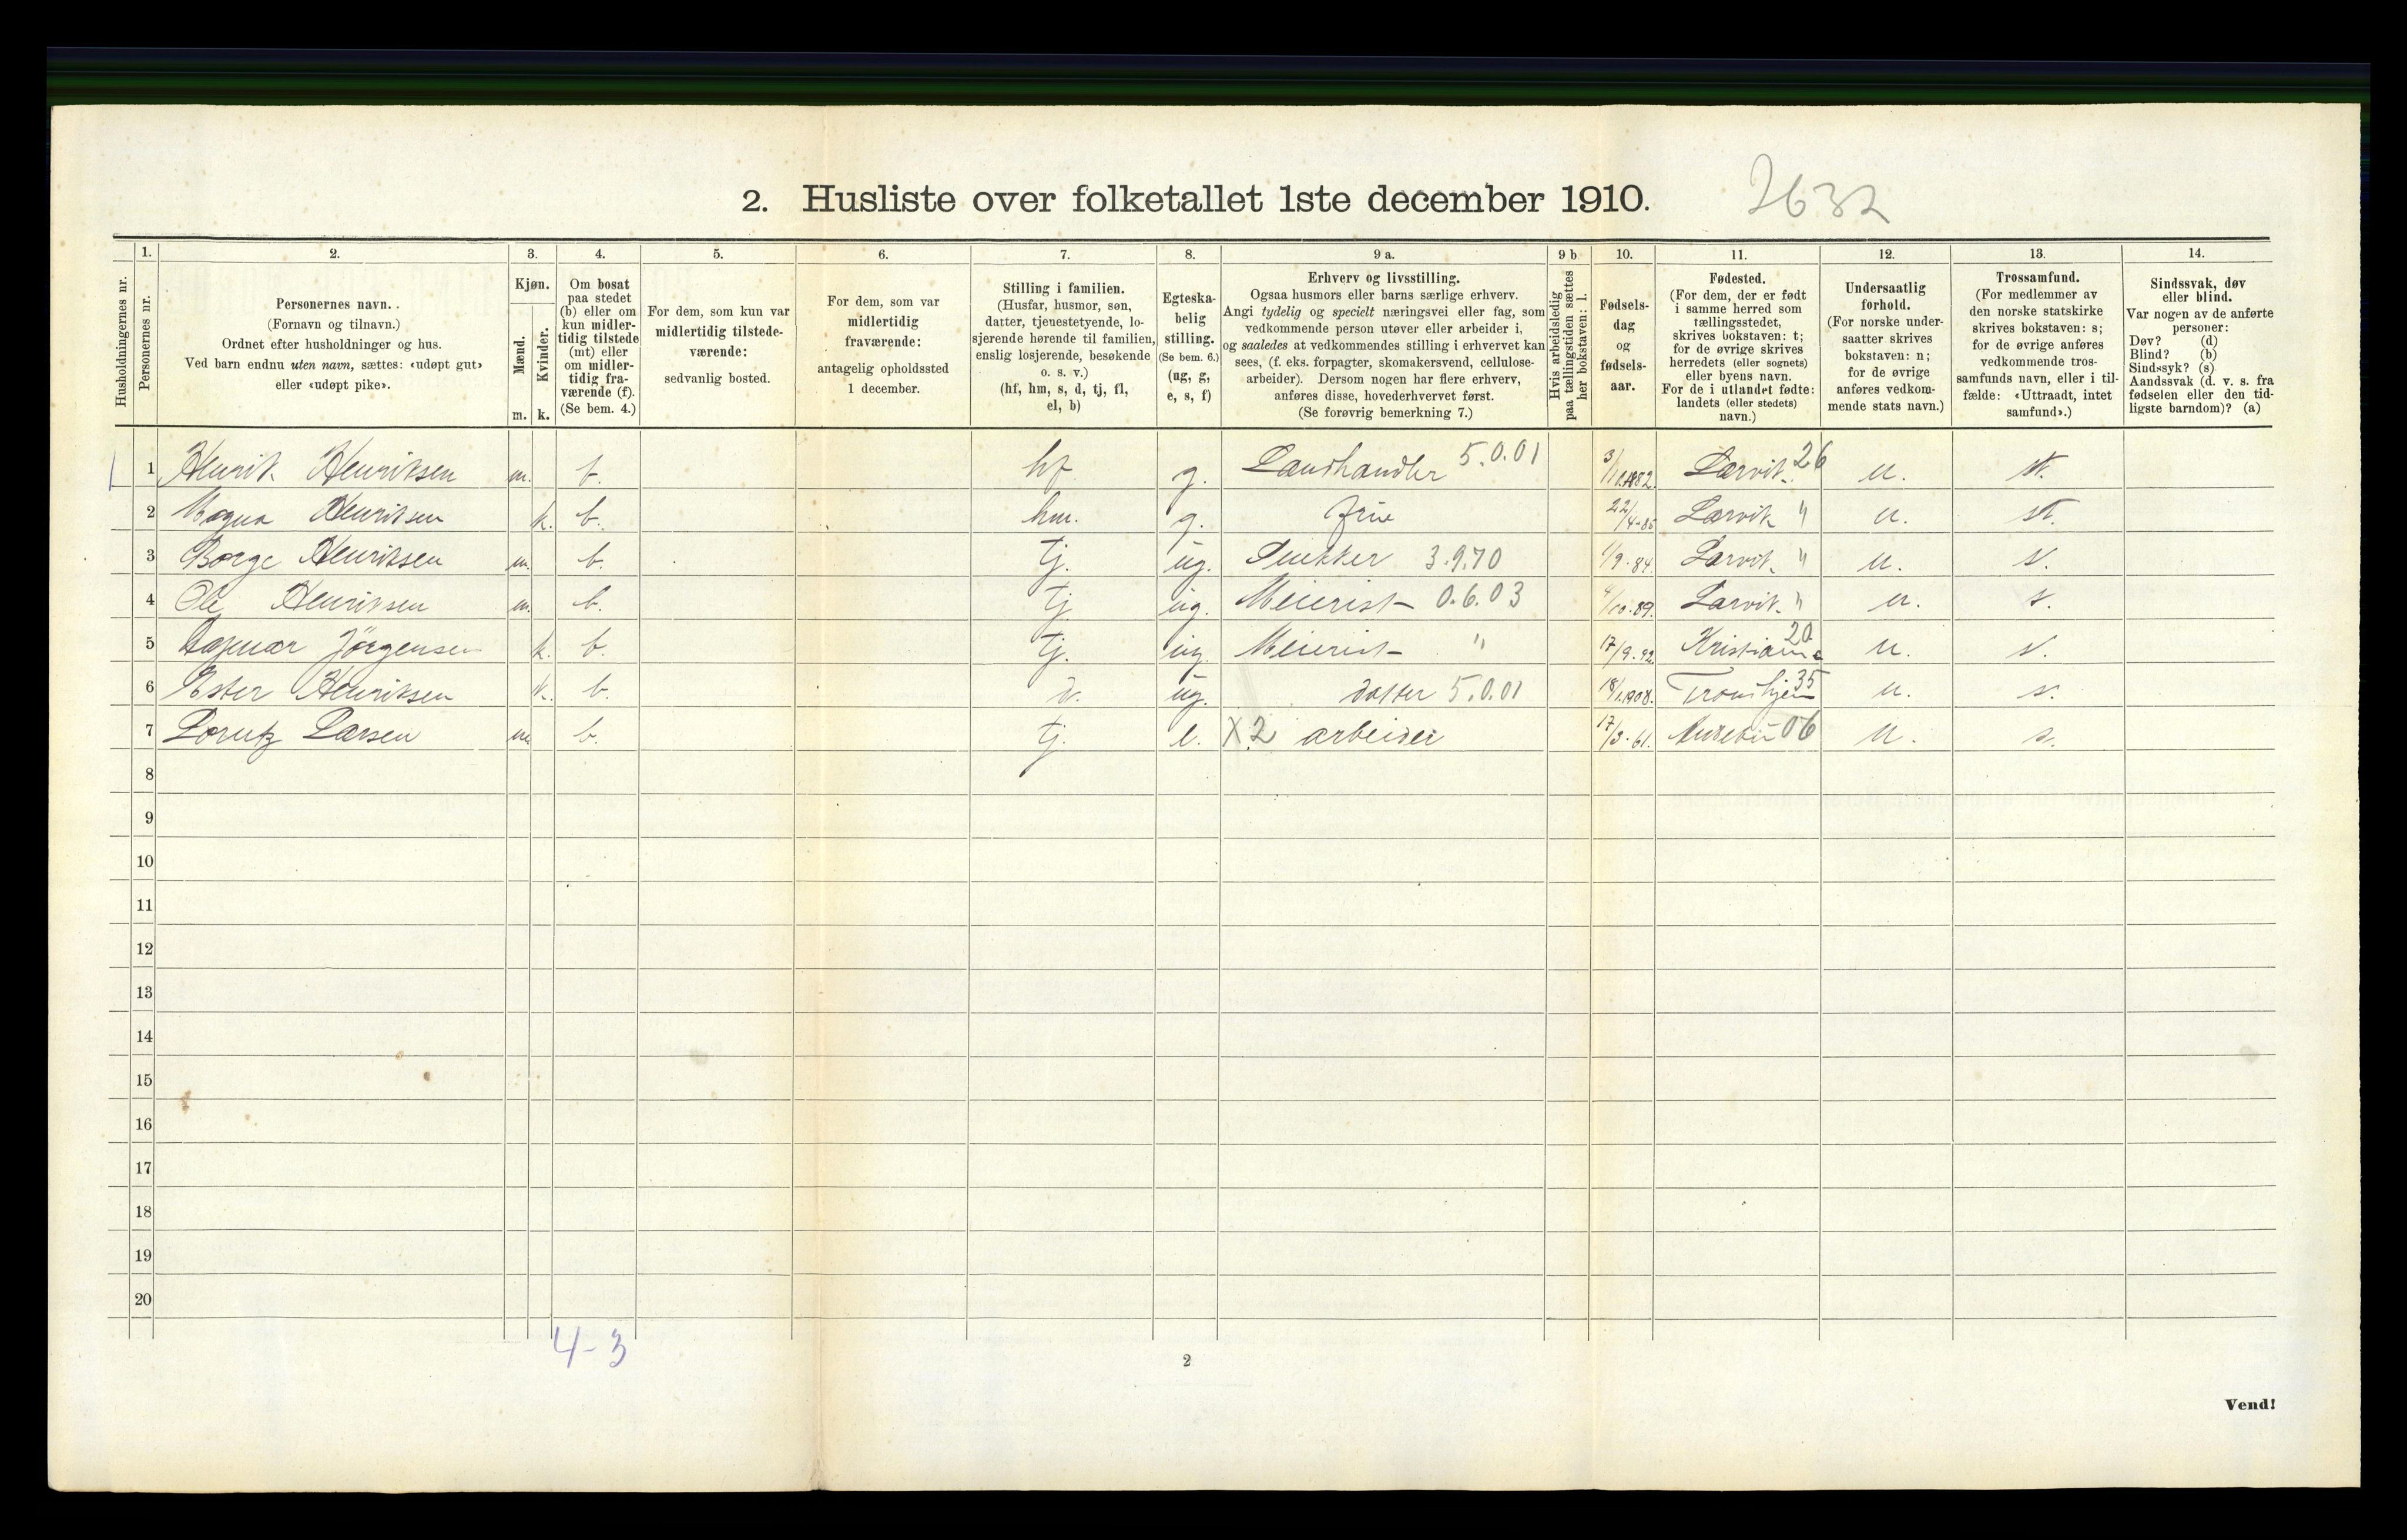 2. Husliste over folketallet 1ste december 1910. 2632
Husholdningernes nr.
1.
Personernes nr.
2.
Personernes navn.
(Fornavn og tilnavn.)
Ordnet efter husholdninger og hus.
Ved barn endnu uten navn, sættes: «udøpt gut»
eller «udøpt pike».
3.
Kjøn.
Mænd.
Kvinder.
m. k.
4.
Om bosat
paa stedet
(b) eller om
kun midler-
tidig tilstede
(mt) eller
om midler-
tidig fra-
værende (f).
(Se bem. 4.)
5.
For dem, som kun var
midlertidig tilstede-
værende:
sedvanlig bosted.
6.
For dem, som var
midlertidig
fraværende:
antagelig opholdssted
1 december.
7.
Stilling i familien.
(Husfar, husmor, søn,
datter, tjenestetyende, lo-
sjerende hørende til familien,
enslig losjerende, besøkende
o. s. v.)
(hf, hm, s, d, tj, fl,
el, b)
8.
Egteska-
belig
stilling.
(Se bem. 6.)
(ug, g,
e, s, f)
9 a.
Erhverv og livsstilling.
Ogsaa husmors eller barns særlige erhverv.
Angi tydelig og specielt næringsvei eller fag, som
vedkommende person utøver eller arbeider i,
og saaledes at vedkommendes stilling i erhvervet kan
sees, (f. eks. forpagter, skomakersvend, cellulose-
arbeider). Dersom nogen har flere erhverv,
anføres disse, hovederhvervet først.
(Se forøvrig bemerkning 7.)
9 b
Hvis arbeidsledig
paa tællingstiden sættes
her bokstaven: l.
10.
Fødsels-
dag
og
fødsels-
aar.
11.
Fødested.
(For dem, der er født
i samme herred som
tællingsstedet,
skrives bokstaven: t;
for de øvrige skrives
herredets (eller sognets)
eller byens navn.
For de i utlandet fødte:
landets (eller stedets)
navn.)
12.
Undersaatlig
forhold.
(For norske under-
saatter skrives
bokstaven: n;
for de øvrige
anføres vedkom-
mende stats navn.)
13.
Trossamfund.
(For medlemmer av
den norske statskirke
skrives bokstaven: s;
for de øvrige anføres
vedkommende tros-
samfunds navn, eller i til-
fælde: «Uttraadt, intet
samfund».)
14.
Sindssvak, døv
eller blind.
Var nogen av de anførte
personer:
Døv? (d)
Blind? (b)
Sindssyk? (s)
Aandssvak (d. v. s. fra
fødselen eller den tid-
ligste barndom)? (a)
1 Henrik Henriksen m. b. hf g. Landhandler 5.0.01 Larvik 26 n. st.
2 Magna Henriksen k. b. hm. g. frue 22/4-85 Larvik " n. st.
3 Børge Henriksen m. b. tj. ug. 3.9.70 1/9-84. Larvik " n. s.
4 Ole Henriksen m. b. tj ug. Meierist 0.6.03 /10-89. Larvik " n. s.
5 Dagmar Jörgensen k. b. tj. ug. Meierist " 17/9-92 Kristiania 20 n. s.
6 Ester Henriksen k. b. d. ug. datter 5.0.01 18/1.1908. Trondhjem 35 n. s.
7 Lorntz Larsen m b. tj. e. X2 arbeider 17/3-61. 06 n. s.
8
9
10
11
12
13
14
15
16
17
18
19
20
4-3
2
Vend!